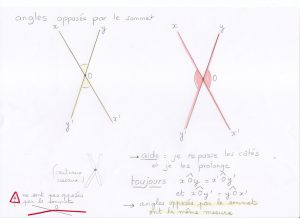 angles opposés par le sommet
x y x y
O O
y' x' y' x'
→ aide : je repasse les côtés
et je les prolonge
toujours xOy = x'Oy'
et xOy' = yOx'
→ angles opposés par le sommet
ont la même mesure
ne sont pas opposés
par le sommet